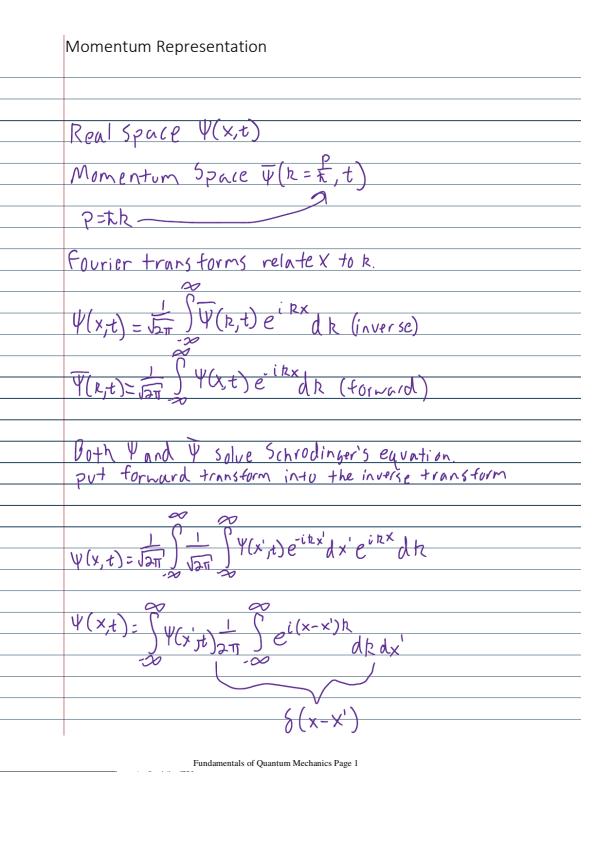 Momentum Representation
Real Space Ψ(x,t)
Momentum Space Ψ̅(k = p/ħ, t)
p=ħk
Fourier transforms relate x to k.
Ψ(x,t) = 1/√2π ∫_{-∞}^{∞} Ψ̅(k,t) e^{ikx} dk (inverse)
Ψ̅(k,t) = 1/√2π ∫_{-∞}^{∞} Ψ(x,t) e^{-ikx} dk (forward)
Both Ψ and Ψ̅ solve Schrodinger's equation.
put forward transform into the inverse transform
Ψ(x,t) = 1/√2π ∫_{-∞}^{∞} 1/√2π ∫_{-∞}^{∞} Ψ(x',t) e^{-ikx'} dx' e^{ikx} dk
Ψ(x,t) = ∫_{-∞}^{∞} Ψ(x',t) 1/2π ∫_{-∞}^{∞} e^{i(x-x')k} dk dx'
δ(x-x')
Fundamentals of Quantum Mechanics Page 1